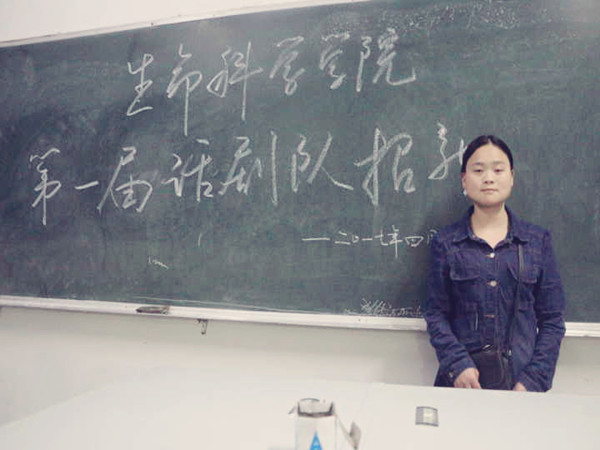 生命科学学院
第一届话剧队招新
——二〇一七年四月